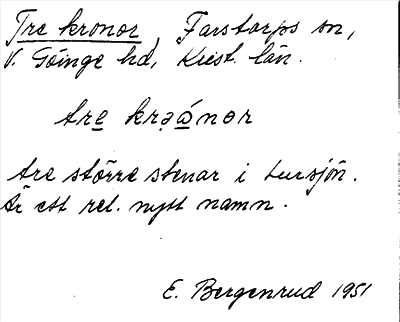 Tre kronor, Farstorps sn,
V. Göinge hd, Krist. län.
tre krǝώnǝr
tre större stenar i Lursjön.
Är ett rel. nytt namn.
E. Bergenrud 1951